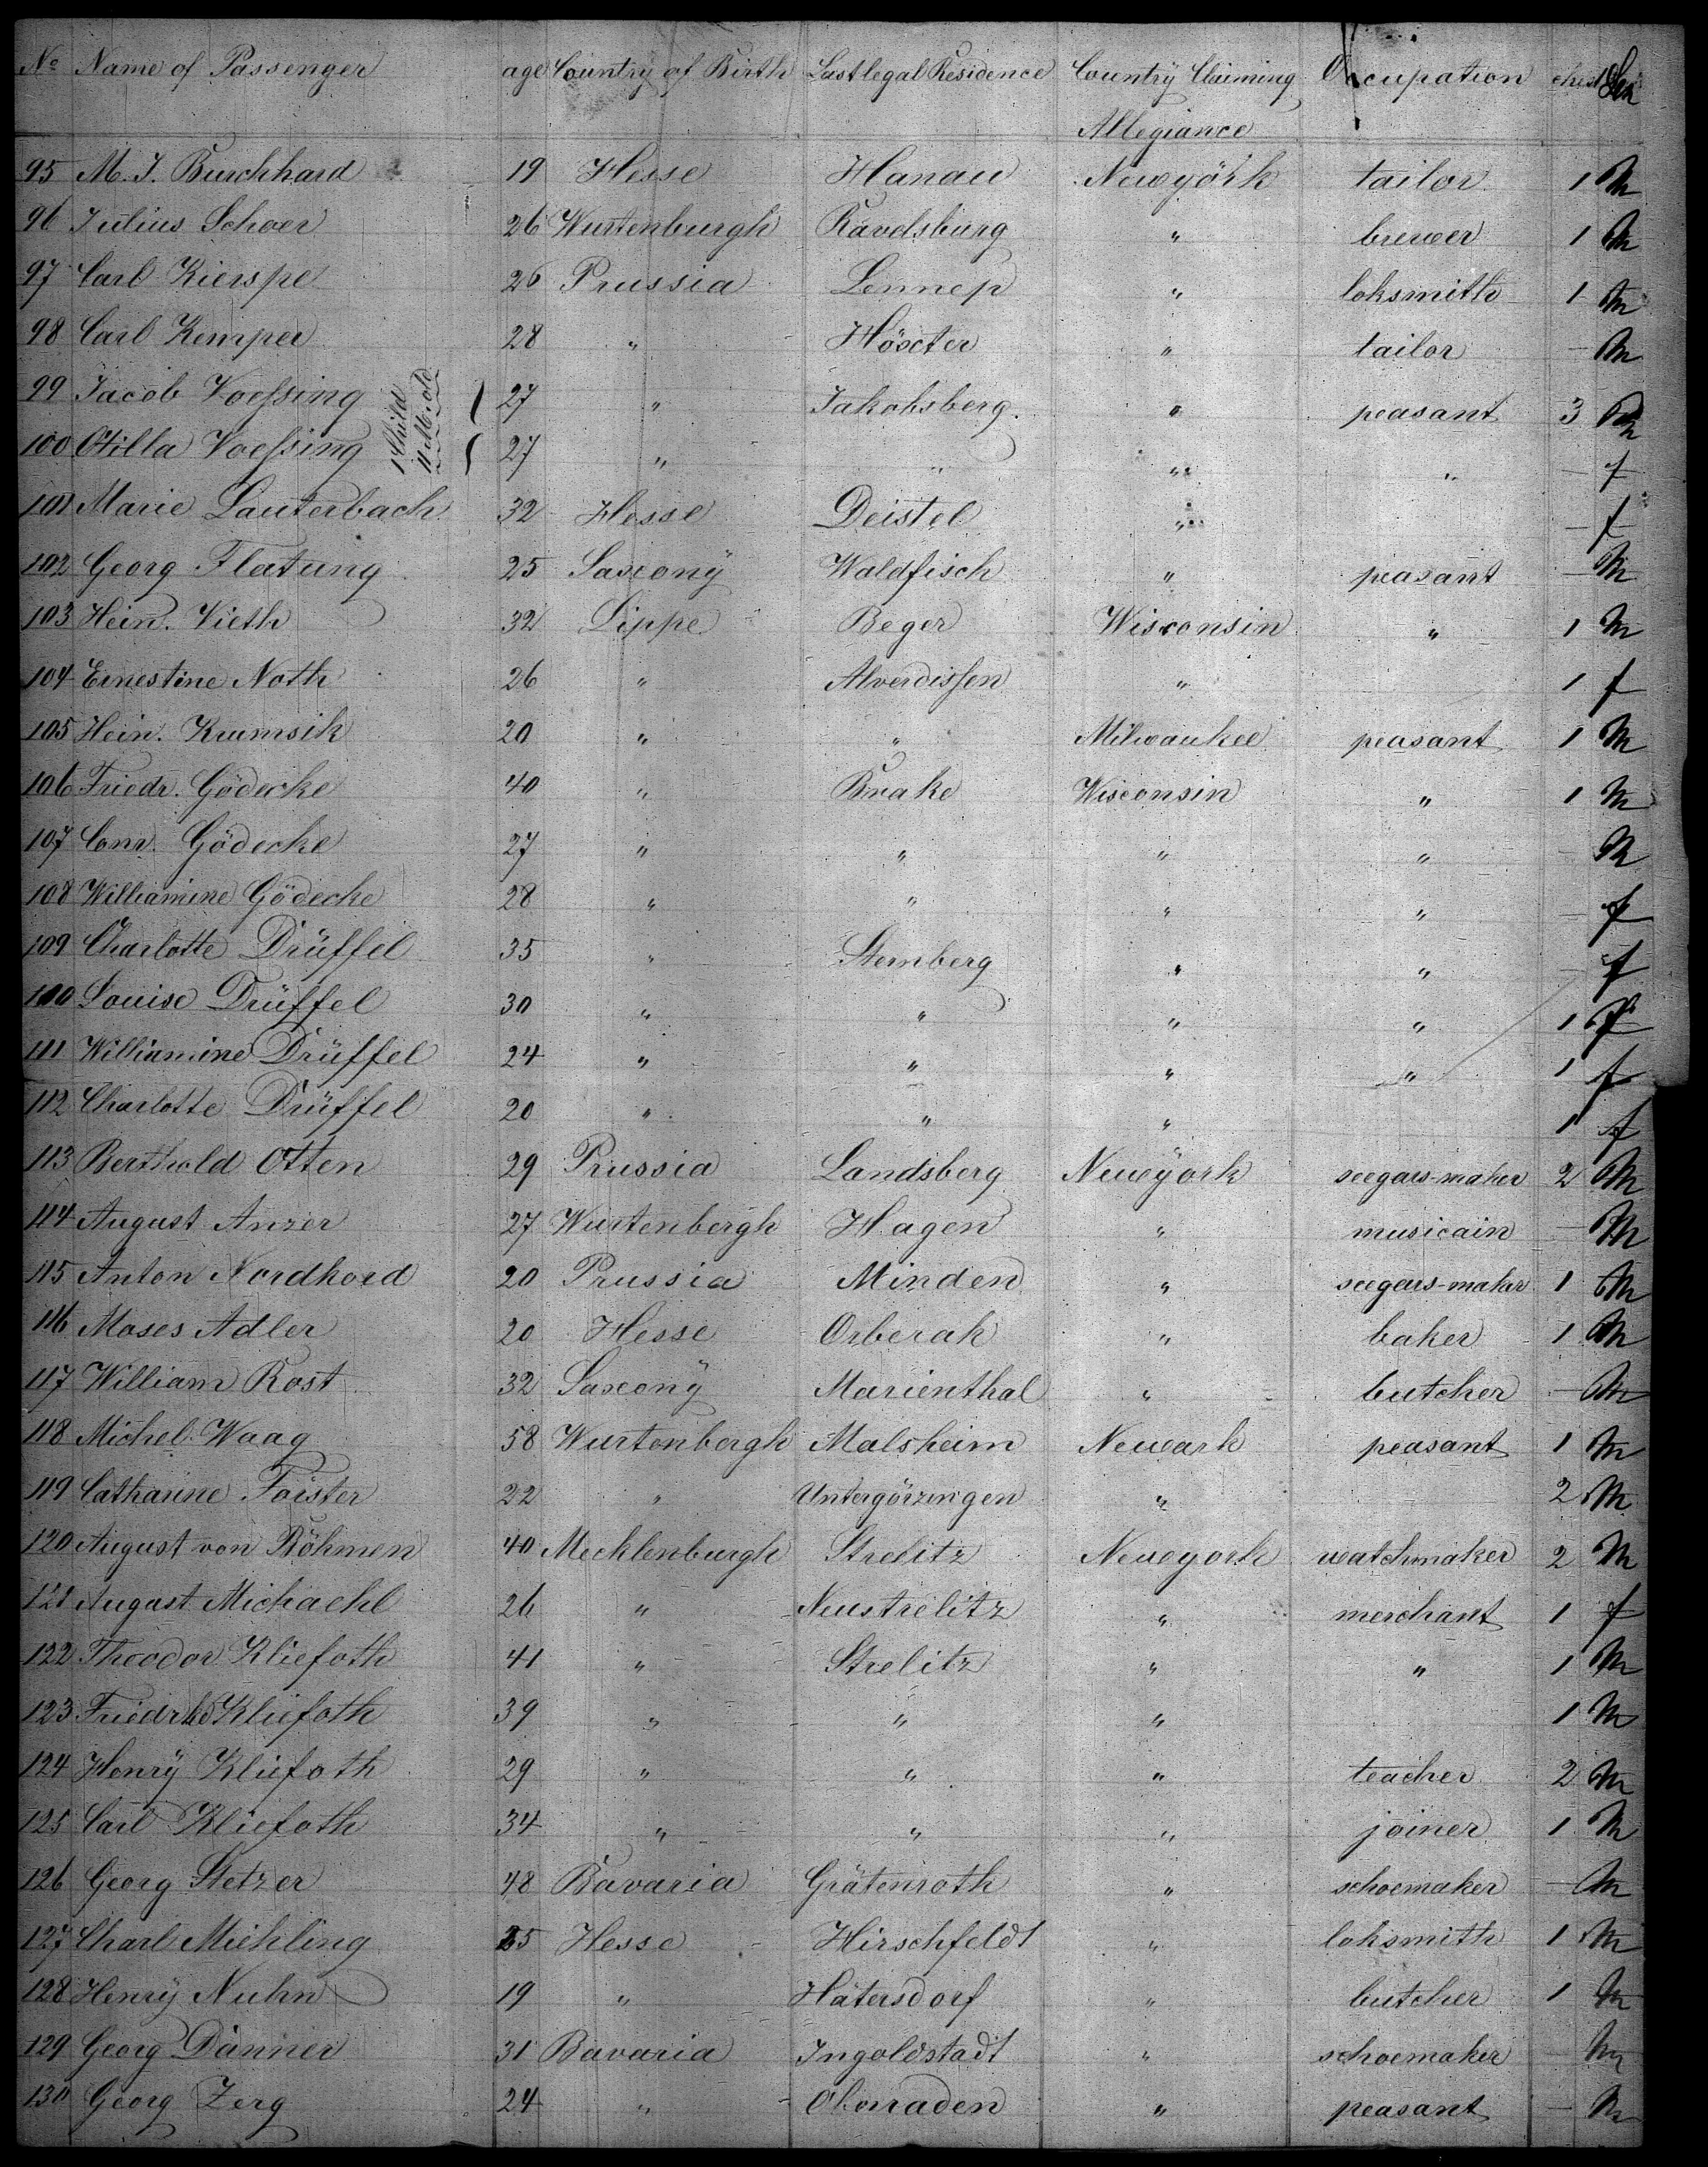 No Name of Passenger age Country of Birth Last legal Residence Country Claiming Allegiance Occupation chest Sex
95 M. J. Burchhard 19 Hesse Hanau Newyork tailor 1 M
96 Julius Schoer 26 Wurtenburgh Ravelsburg " brewer 1 M
97 Carl Kierspe 26 Prussia Lennep " loksmith 1 M
98 Carl Kemper 28 " Höxter " tailor - M
99 Jacob Voessing 27 " Jakobsberg. " peasant 3 M
1 Child 11 M. old
100 Otilla Voessing 27 " " " " - f
101 Marie Lauterbach 32 Hesse Deistel " - f
102 Georg Flatung 25 Saxony Waldfisch " peasant - M
103 Hein. Vieth 32 Lippe Beger Wisconsin " 1 M
104 Ernestine Noth 26 " Alverdissen " 1 f
105 Hein. Krumsik 20 " " Milwaukee peasant 1 M
106 Friedr. Gödecke 40 " Brake Wisconsin " 1 M
107 Conr. Gödecke 27 " " " " - M
108 Williamine Gödecke 28 " " " " - f
109 Charlotte Drüffel 35 " Sternberg " " - f
110 Louise Drüffel 30 " " " " 1 f
111 Williamine Drüffel 24 " " " " 1 f
112 Charlotte Drüffel 20 " " " 1 f
113 Berthold Otten 29 Prussia Landsberg Newyork seegars-maker 2 M
114 August Anzer 27 Wurtenbergh Hagen " musicain - M
115 Anton Nordhord 20 Prussia Minden " seegars-maker 1 M
116 Moses Adler 20 Hesse Orberak " baker 1 M
117 William Rost 32 Saxony Marienthal " butcher - M
118 Michel Waag 58 Wurtenbergh Malsheim Newark peasant 1 M
119 Catharine Foister 22 " Untergörzingen " 2 M
120 August von Böhmen 40 Mecklenburgh Strelitz Newyork watchmaker 2 M
121 August Michaehl 26 " Neustrelitz " merchant 1 f
122 Theodor Kliefoth 41 " Strelitz " " 1 M
123 Kliefoth 39 " " " 1 M
124 Henry Kliefoth 29 " " " teacher 2 M
125 Carl Kliefoth 34 " " " joiner 1 M
126 Georg Stetzer 48 Bavaria Grätenroth " schoemaker - M
127 Charl Miehling 25 Hesse Hirschfeldt " loksmith 1 M
128 Henry Nuhn 19 " Hätersdorf " butcher 1 M
129 Georg Danner 31 Bavaria Ingoldstadt " schoemaker - M
130 Georg Zerg 24 " Obonraden " peasant - M